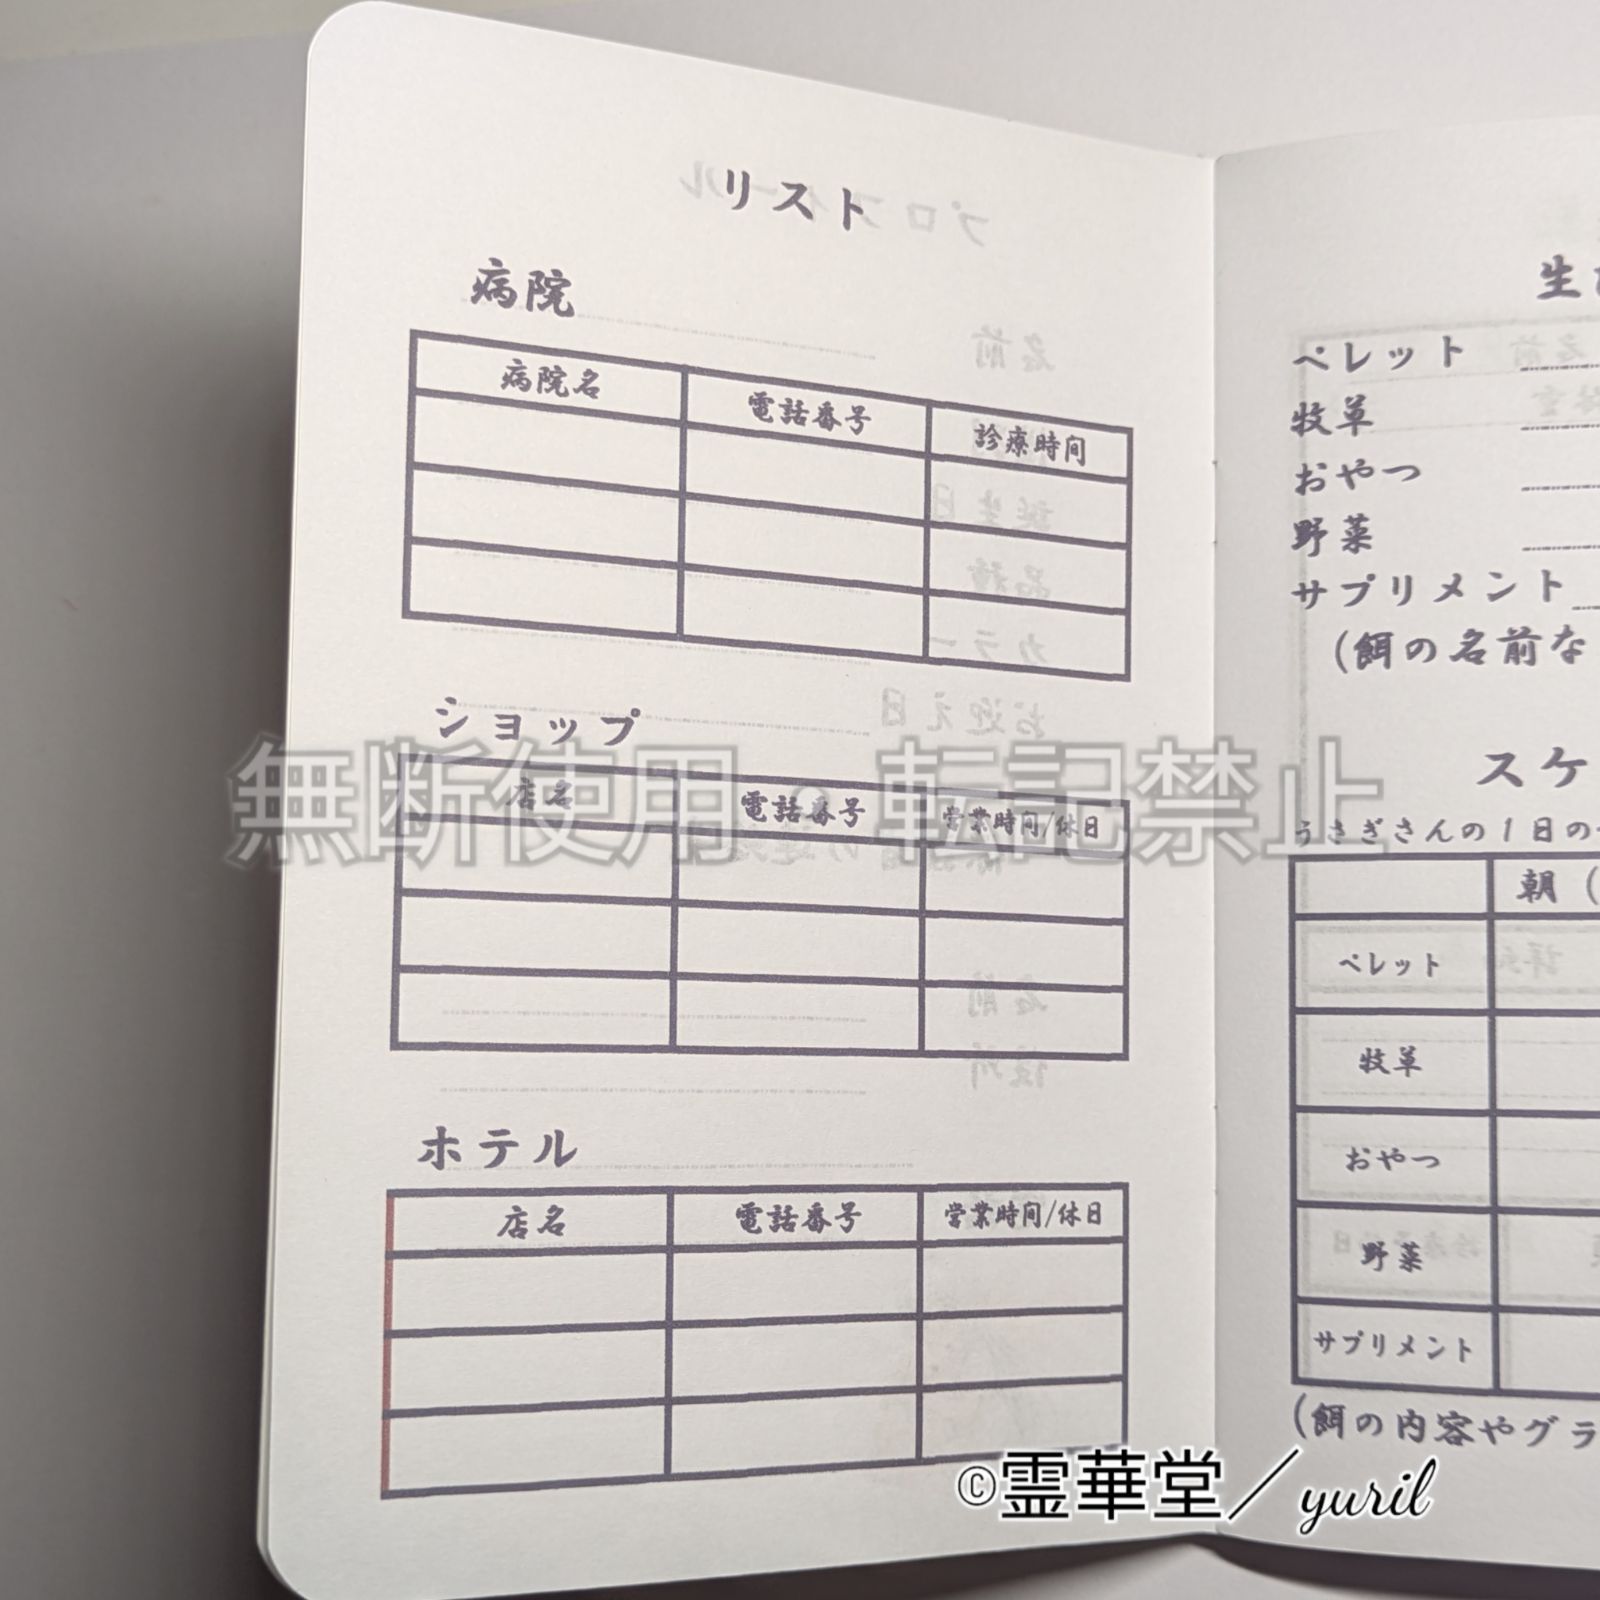 リスト
病院
病院名 電話番号 診療時間
ショップ
店名 電話番号 営業時間/休日
ホテル
店名 電話番号 営業時間/休日
生
ペレット
牧草
おやつ
野菜
サプリメント
(餌の名前な
スケ
うさぎさんの1日の
朝(
ペレット
牧草
おやつ
野菜
サプリメント
(餌の内容やグラ
無断使用・転記禁止
©霊華堂／yuril